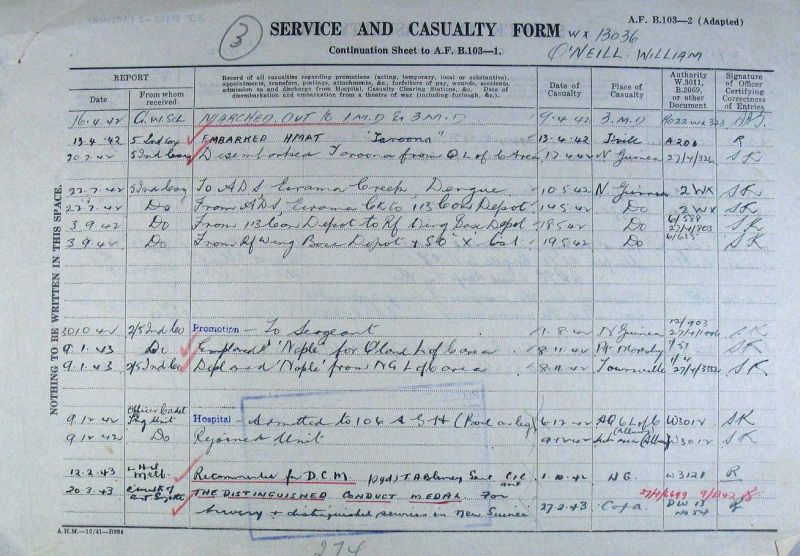 3
SERVICE AND CASUALTY FORM
A.F. B.103—2 (Adapted)
WX 13036
Continuation Sheet to A.F. B.103—1.
O'NEILL. WILLIAM
REPORT
Date
From whom received
Record of all casualties regarding promotions (acting, temporary, local or substantive), appointments, transfers, postings, attachments, &c., forfeiture of pay, wounds, accidents, admission to and discharge from Hospital, Casualty Clearing Stations, &c. Date of disembarkation and embarkation from a theatre of war (including furlough, &c.).
Date of Casualty
Place of Casualty
Authority W.3011, B.2069, or other Document
Signature of Officer Certifying Correctness of Entries
NOTHING TO BE WRITTEN IN THIS SPACE.
16.4.42 G.W. Sch MARCHED OUT to 1 M.D Ex 3 M.D 9.4.42 3.M.D
13.4.42 5 Ind Coy EMBARKED HMAT "Taroona" 13.4.42 T'ville A206 R
20.7.42 5 Ind Coy Disembarked Taroona from Q L of C Area 17.4.42 N Guinea 27/4/326 SK
22.7.42 5 Ind Coy To ADS Eorama Creek Dengue 10.5.42 N Guinea 2 WX SK
22.7.42 Do From ADS, Eorama Ck to 113 Con Depot 14.5.42 Do 2 WX SK
3.9.42 Do From 113 Con Depot to Rf Wing Base Depot 18.5.42 Do 6/588 27/4/803 SK
3.9.42 Do From Rf Wing Base Depot 19.5.42 Do 6/635 SK
30.10.42 2/5 Ind Co Promotion — To Sergeant 1.8.42 N Guinea 12/903 SK
9.1.43 Do for Q land L of C area 8.11.42 Pt Moresby 1/51 SK
9.1.43 2/5 Ind Co from NG L of C area 8.11.42 Townsville 1/4 27/4/3552 SK
9.12.42 Officer Cadet Trg Unit Hospital — Admitted to 106 AGH 6.12.42 HQ 6 L of C (Albury) W3012 SK
9.12.42 Do Rejoined Unit 9.12.42 (Albury) W3012 SK
12.2.43 LHQ Melb. Recommended for D.C.M. (sgd) T A Blamey C in C 1.10.42 N.G. W3121 R
20.3.43 THE DISTINGUISHED CONDUCT MEDAL. For
bravery & distinguished services in New Guinea 27.2.43
A.H.M.—10/41—B894
274